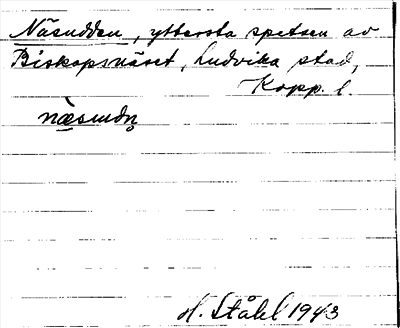 Näsudden, yttersta spetsen av
Biskopsnäset, Ludvika stad,
Kopp. l.
næ̀sudn̥
H. Ståhl 1943